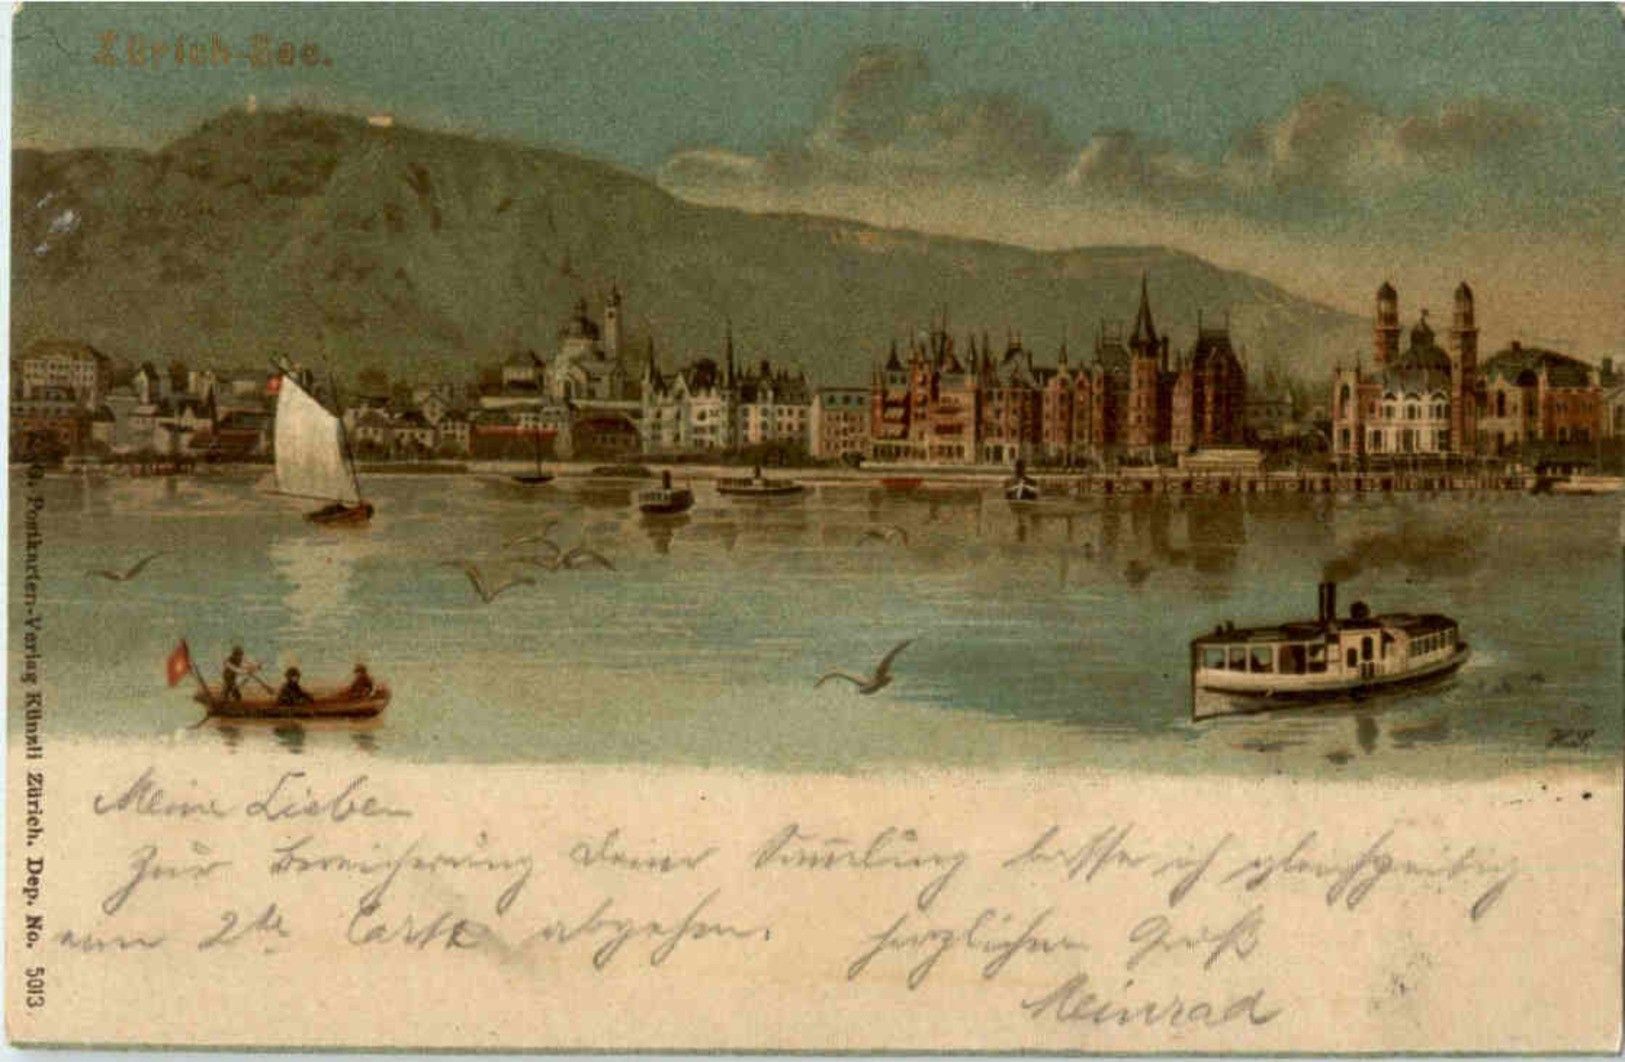 Zürich-See.
Postkarten-Verlag Künzli Zürich. Dep. No. 5013.
Meine Lieben
Zur Bereicherung Deiner Sammlung lasse ich gleichzeitig
eine 2te Carte abgehen. herzlichen Gruß
Meinrad